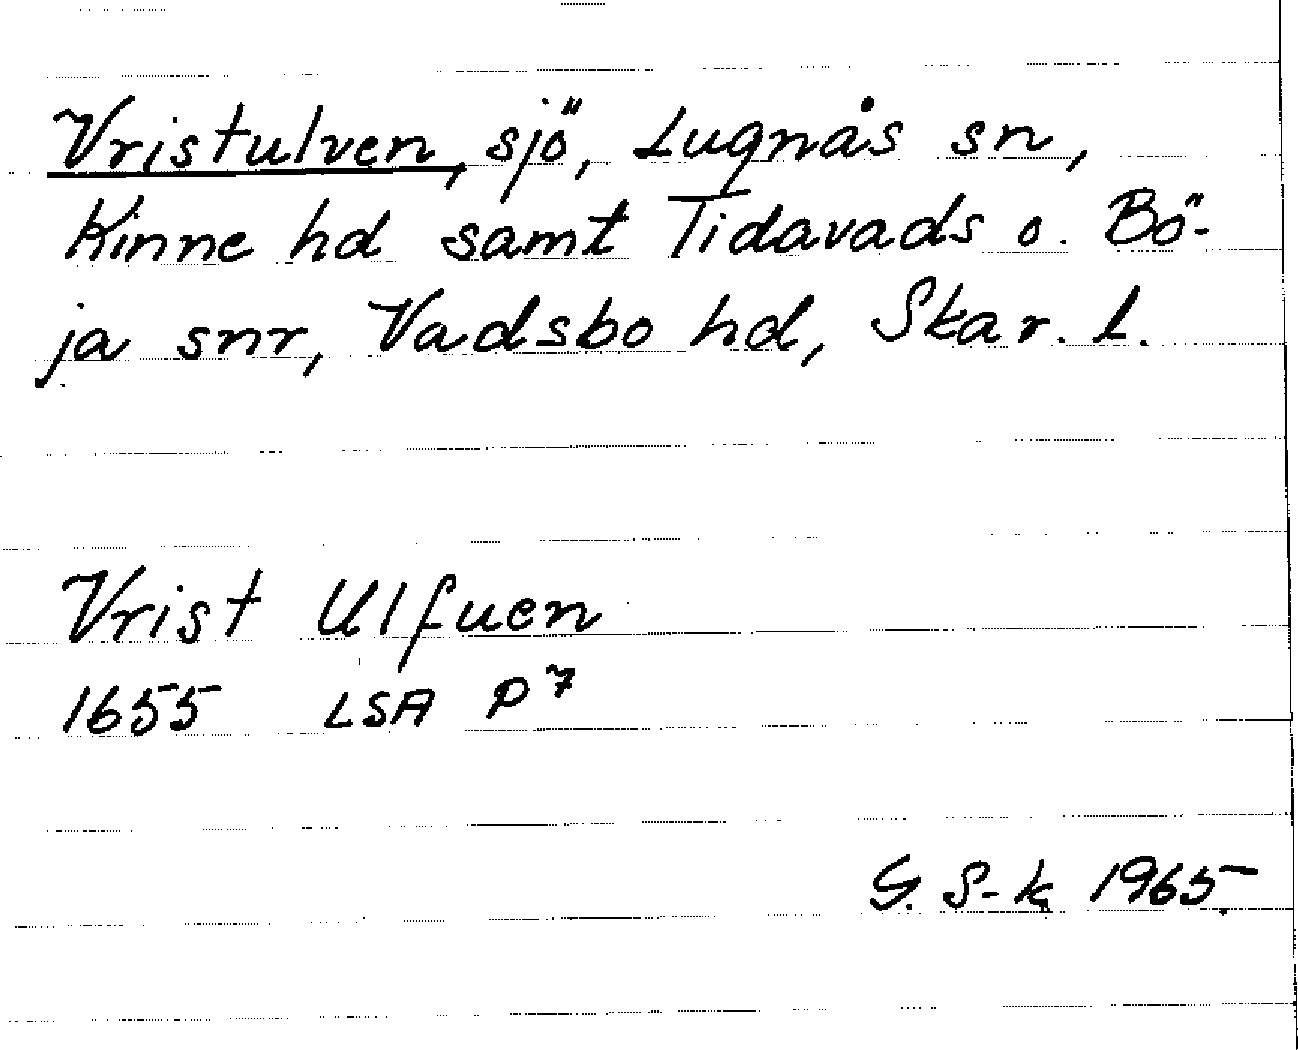 Vristulven, sjö, Lugnås sn,
Kinne hd samt Tidavads o. Bö-
ja snr, Vadsbo hd, Skar. l.
Vrist Ulfuen
1655 LSA P7
G. S-k 1965.